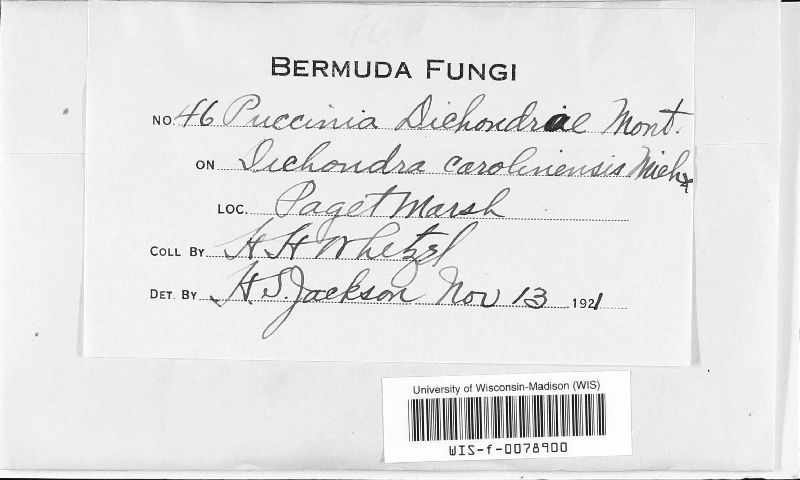 BERMUDA FUNGI
NO 46 Puccinia Dichondrae Mont.
ON Dichondra caroliniensis Michx
LOC. Paget Marsh
COLL BY H H Whetzel
DET. BY H. S. Jackson Nov 13 1921
University of Wisconsin-Madison (WIS)
WIS-f-0078900